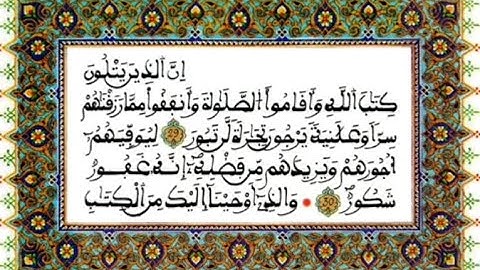 اِنَّ الَّذِينَ يَتْلُونَ
كِتَٰبَ اللَّهِ وَأَقَامُوا۟ الصَّلَوٰةَ وَأَنفَقُوا۟ مِمَّا رَزَقْنَٰهُمْ
سِرًّا وَعَلَٰنِيَةً يَرْجُونَ تِجَٰرَةً لَّن تَبُورَ 29 لِيُوَفِّيَهُمْ
أُجُورَهُمْ وَيَزِيدَهُم مِّن فَضْلِهِ إِنَّهُ غَفُورٌ
شَكُورٌ 30 وَالَّذِي أَوْحَيْنَا إِلَيْكَ مِنَ الْكِتَٰبِ